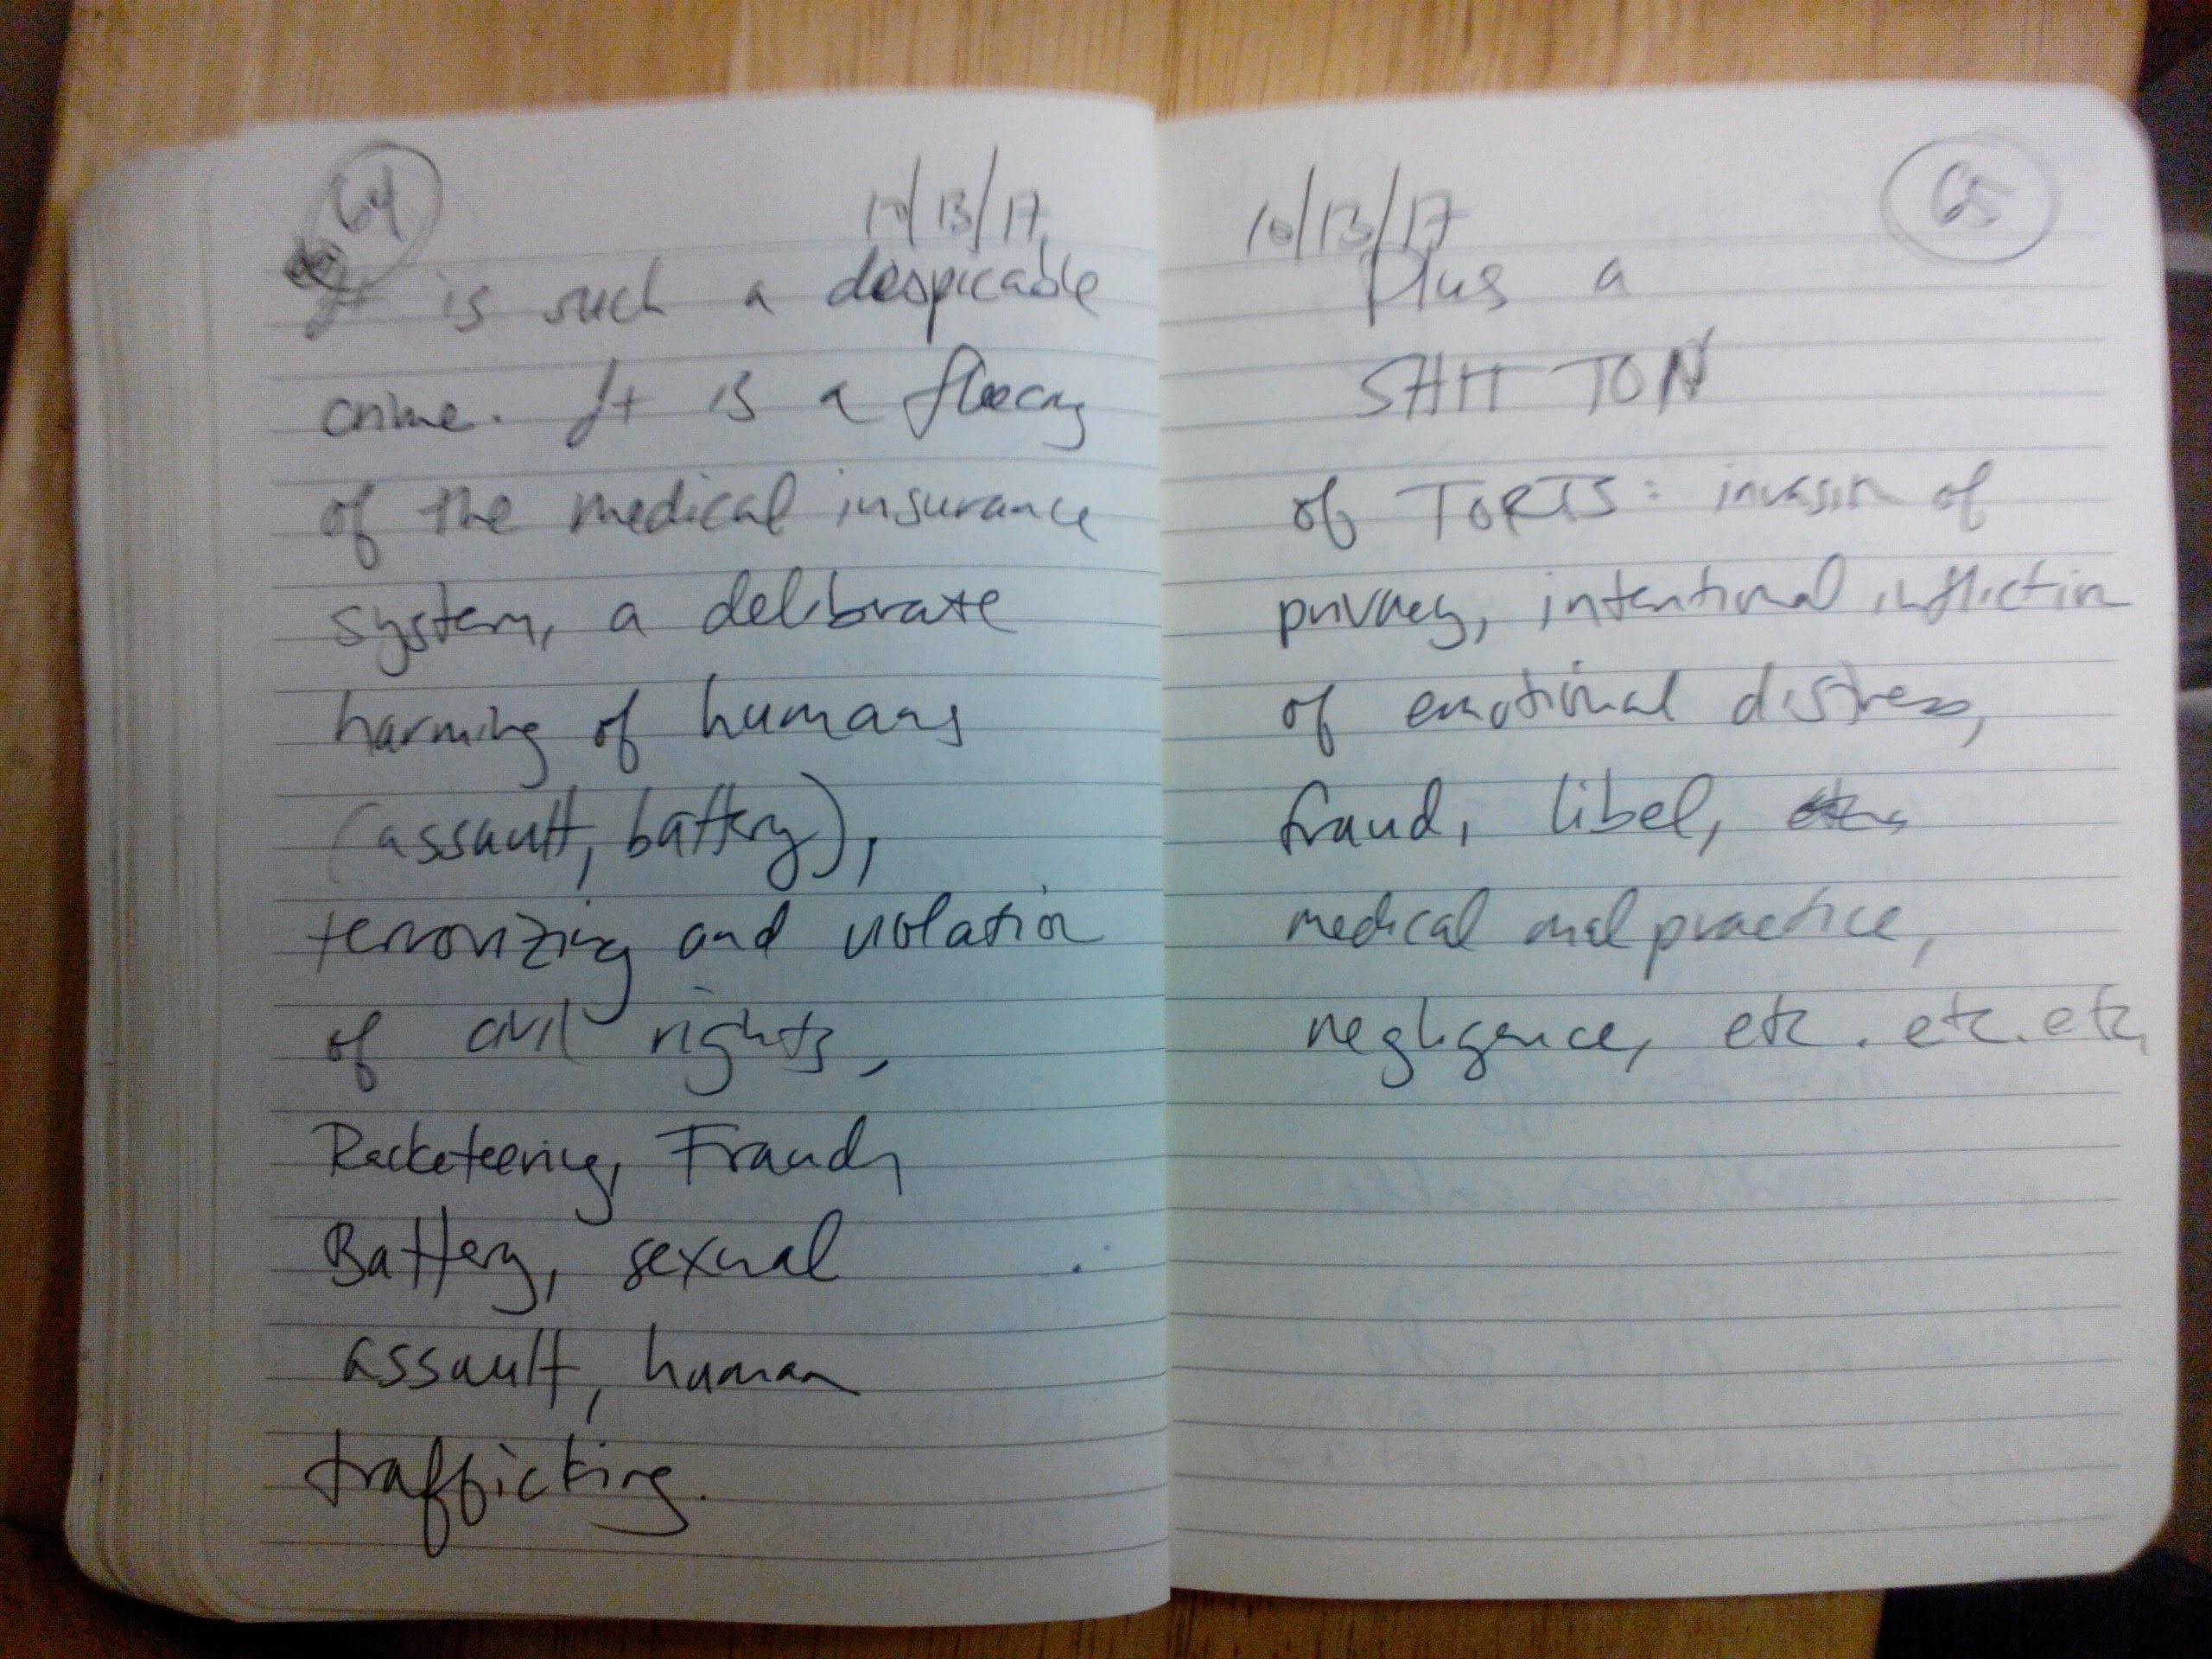 64
10/13/17
It is such a despicable
crime. It is a fleecing
of the medical insurance
system, a deliberate
harming of humans
(assault, battery),
terrorizing and violation
of civil rights,
Racketeering, Fraud,
Battery, sexual
assault, human
trafficking.
10/13/17
65
Plus a
SHIT TON
of TORTS: invasion of
privacy, intentional infliction
of emotional distress,
fraud, libel,
medical malpractice,
negligence, etc. etc. etc.